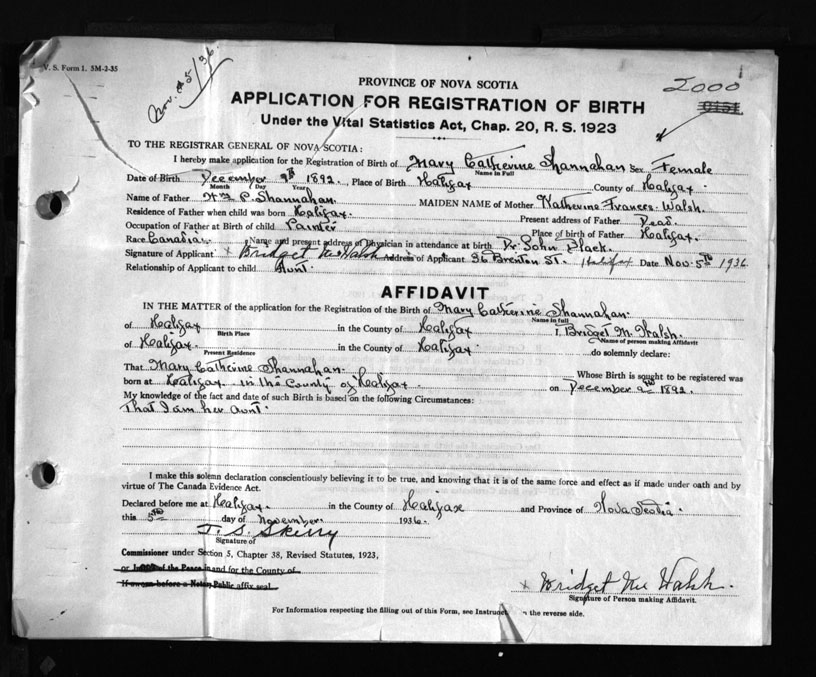 V. S. Form 1. 5M-3-35
Nov. 5/36
2000
PROVINCE OF NOVA SCOTIA
APPLICATION FOR REGISTRATION OF BIRTH
Under the Vital Statistics Act, Chap. 20, R. S. 1923
TO THE REGISTRAR GENERAL OF NOVA SCOTIA:
I hereby make application for the Registration of Birth of Mary Catherine Shannahan Sex Female
Name in Full
Date of Birth December 9th 1892. Place of Birth Halifax County of Halifax
Month Day Year
Name of Father P. Shannahan. MAIDEN NAME of Mother Katherine Frances Walsh.
Residence of Father when child was born Halifax. Present address of Father Dead.
Occupation of Father at Birth of child Painter Place of birth of Father Halifax.
Race Canadian. Name and present address of Physician in attendance at birth Dr. John Slack.
Signature of Applicant x Bridget Walsh Address of Applicant 36 Brenton St. Halifax Date Nov. 5th 1936
Relationship of Applicant to child Aunt.
AFFIDAVIT
IN THE MATTER of the application for the Registration of the Birth of Mary Catherine Shannahan.
Name in full
of Halifax in the County of Halifax I, Bridget M. Walsh.
Birth Place Name of person making Affidavit
of Halifax. in the County of Halifax. do solemnly declare:
Present Residence
That Mary Catherine Shannahan. Whose Birth is sought to be registered was
born at Halifax in the County of Halifax on December 9th 1892.
My knowledge of the fact and date of such Birth is based on the following Circumstances:
That I am her Aunt.
I make this solemn declaration conscientiously believing it to be true, and knowing that it is of the same force and effect as if made under oath and by
virtue of The Canada Evidence Act.
Declared before me at Halifax. in the County of Halifax and Province of Nova Scotia.
this 5th day of November. 1936.
J. S. Skerry
Signature of
Commissioner under Section 5, Chapter 38, Revised Statutes, 1923,
or Justice of the Peace in and for the County of
If sworn before a Notary Public affix seal
x Bridget Walsh.
Signature of Person making Affidavit.
For Information respecting the filling out of this Form, see on the reverse side.